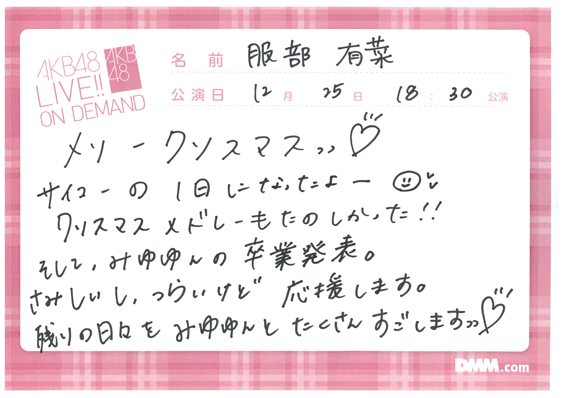 AKB48
LIVE!!
ON DEMAND
AKB
48
名 前 服部 有菜
公演日 12 月 25 日 18 : 30 公演
メリークリスマスッッ♡
サイコーの1日になったよー☺
クリスマスメドレーもたのしかった!!
そして、みゆゆんの卒業発表。
さみしいし、つらいけど 応援します。
残りの日々をみゆゆんとたくさんすごしますッッ♡
DMM.com